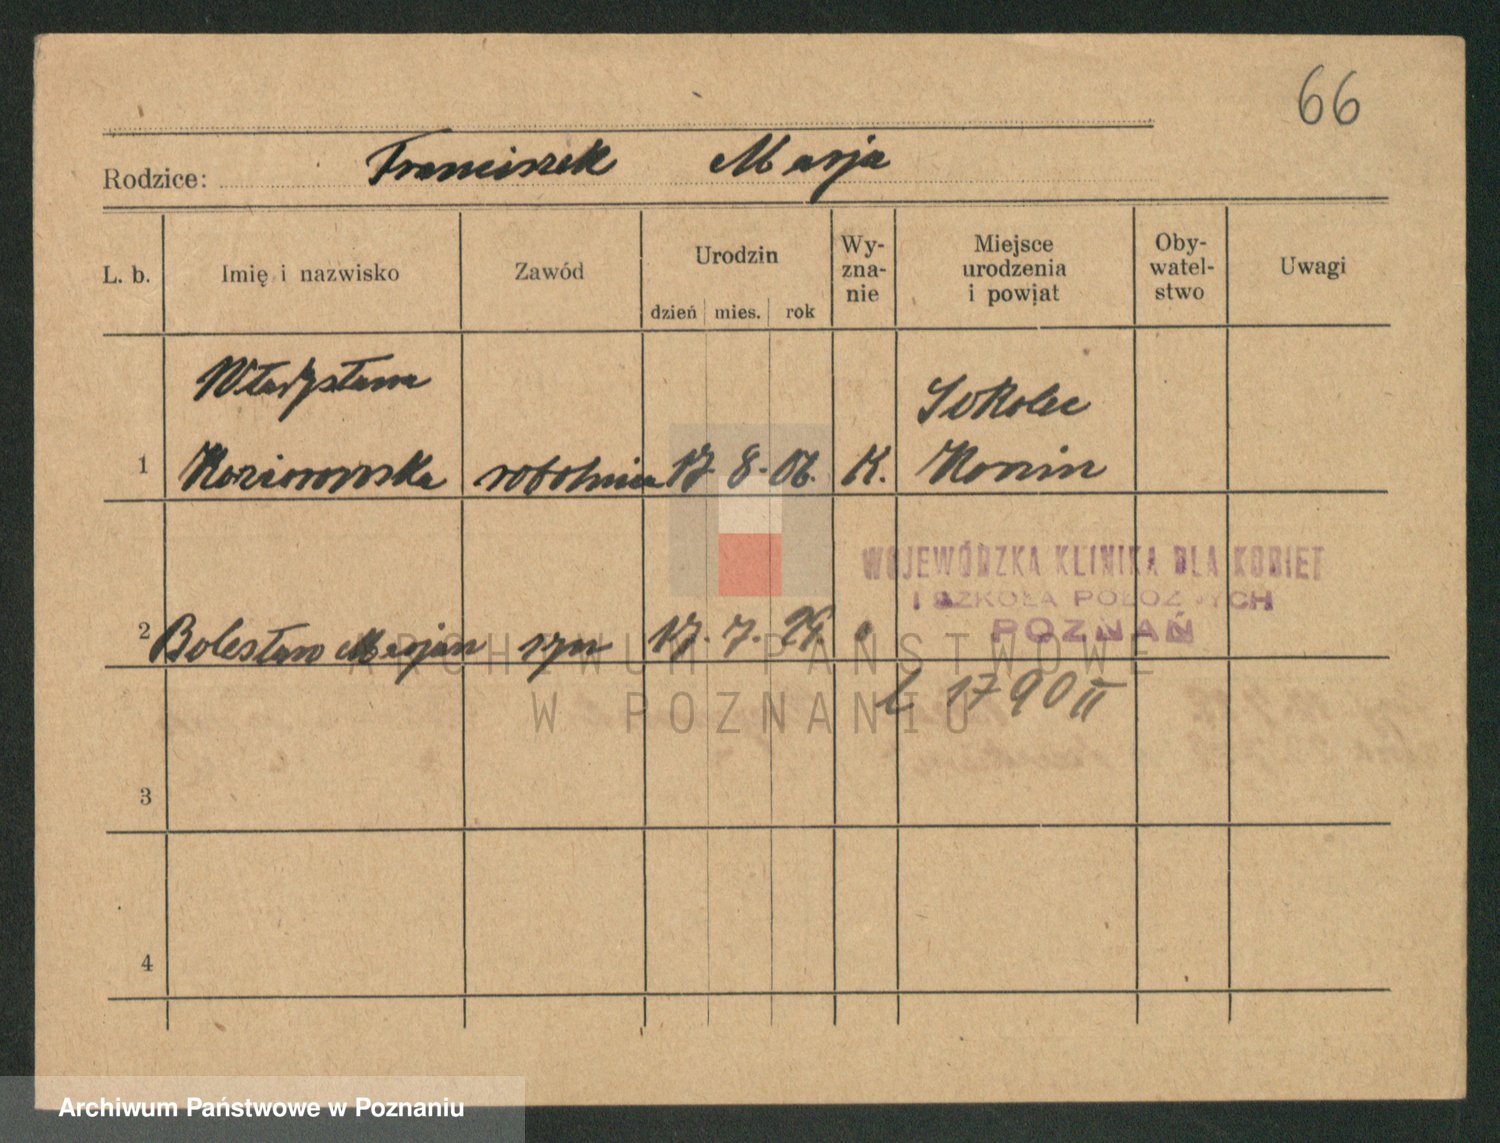 66
Rodzice: Franciszek Marja
L. b. Imię i nazwisko Zawód Urodzin Wy-zna-nie Miejsce urodzenia i powiat Oby-watel-stwo Uwagi
dzień mies. rok
Władysława Sokolec
1 Koziorowska robotnica 17. 8. 06. K. Konin
WOJEWÓDZKA KLINIKA DLA KOBIET
I SZKOŁA POŁOŻNYCH
POZNAŃ
2 Bolesław Marjan syn 17. 7. 28.
ARCHIWUM PAŃSTWOWE
W POZNANIU
L 1790 II
3
4
Archiwum Państwowe w Poznaniu